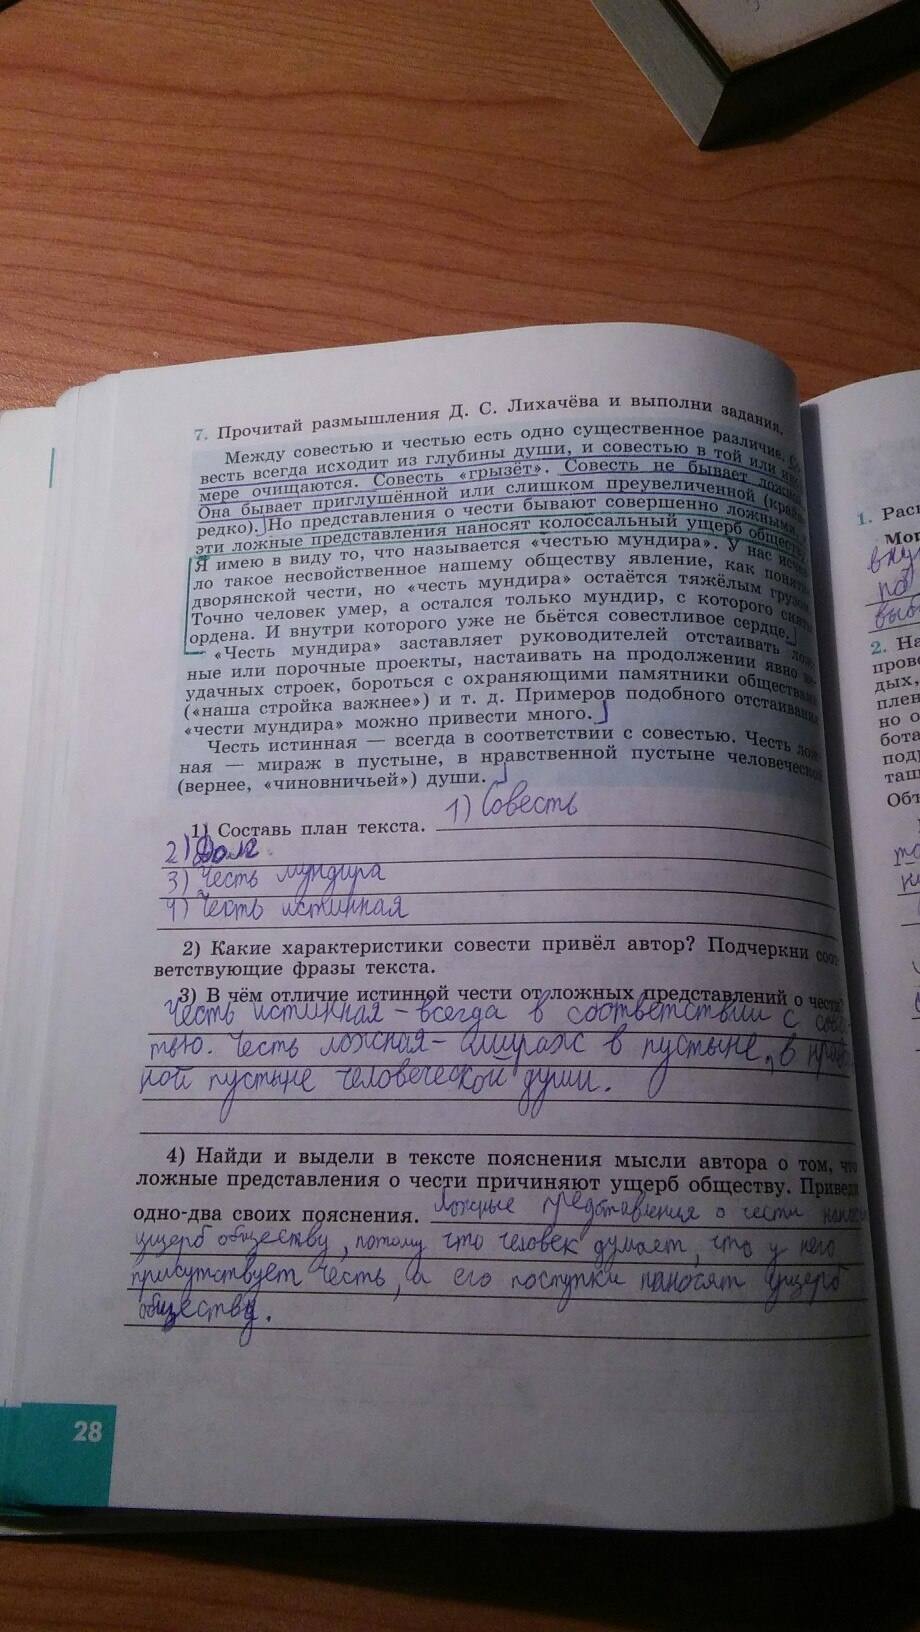 7. Прочитай размышления Д. С. Лихачёва и выполни задания.
Между совестью и честью есть одно существенное различие. Со-
весть всегда исходит из глубины души, и совестью в той или иной
мере очищаются. Совесть «грызёт». Совесть не бывает ложной.
Она бывает приглушённой или слишком преувеличенной (крайне
редко). Но представления о чести бывают совершенно ложными, и
эти ложные представления наносят колоссальный ущерб обществу.
Я имею в виду то, что называется «честью мундира». У нас исчез-
ло такое несвойственное нашему обществу явление, как понятие
дворянской чести, но «честь мундира» остаётся тяжёлым грузом.
Точно человек умер, а остался только мундир, с которого сняты
ордена. И внутри которого уже не бьётся совестливое сердце.
«Честь мундира» заставляет руководителей отстаивать лож-
ные или порочные проекты, настаивать на продолжении явно не-
удачных строек, бороться с охраняющими памятники обществами
(«наша стройка важнее») и т. д. Примеров подобного отстаивания
«чести мундира» можно привести много.
Честь истинная — всегда в соответствии с совестью. Честь лож-
ная — мираж в пустыне, в нравственной пустыне человеческой
(вернее, «чиновничьей») души.
1) Составь план текста. 1) Совесть
2) Долг
3) Честь мундира
4) Честь истинная
2) Какие характеристики совести привёл автор? Подчеркни соот-
ветствующие фразы текста.
3) В чём отличие истинной чести от ложных представлений о чести?
Честь истинная – всегда в соответствии с совес-
тью. Честь ложная – мираж в пустыне, в нравс
ной пустыне человеческой души.
4) Найди и выдели в тексте пояснения мысли автора о том, что
ложные представления о чести причиняют ущерб обществу. Приведи
одно-два своих пояснения. Ложные представления о чести наносят
ущерб обществу, потому что человек думает, что у него
присутствует честь, а его поступки наносят ущерб
обществу.
28
1. Расс
2. На
прово
дых,
плен
но о
бота
подр
таш
Объ